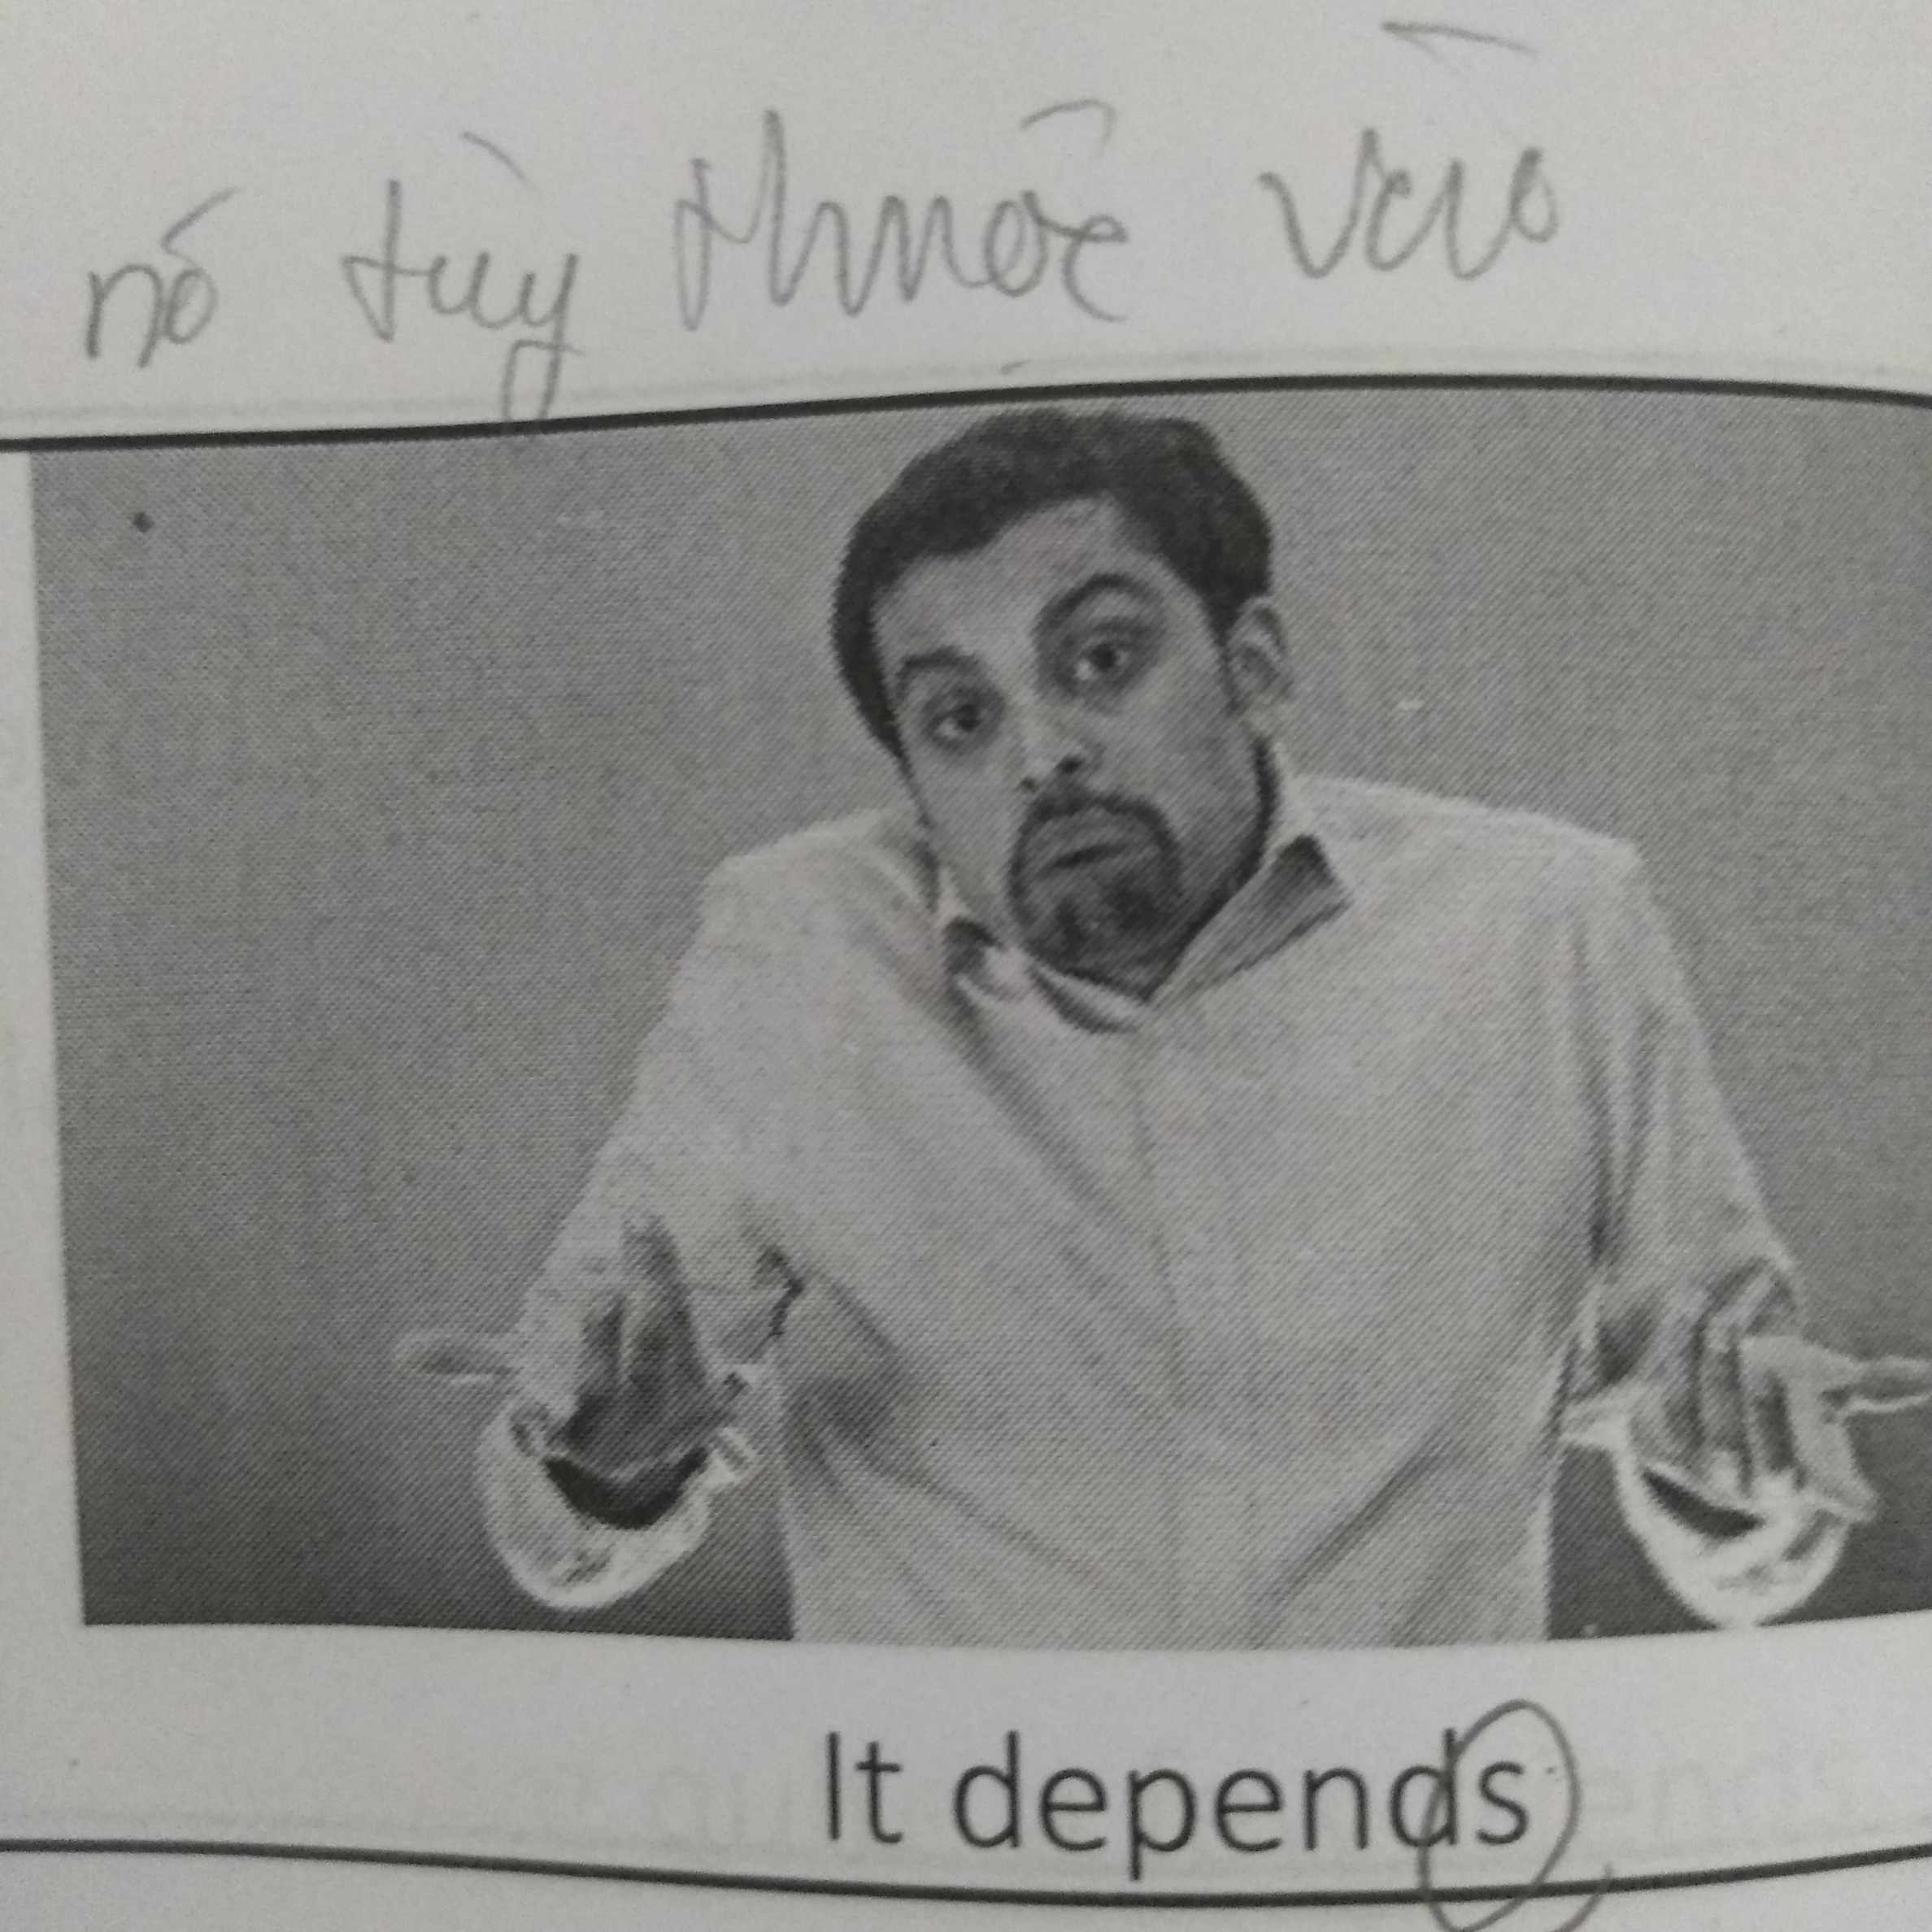 nó tùy thuộc vào
It depends